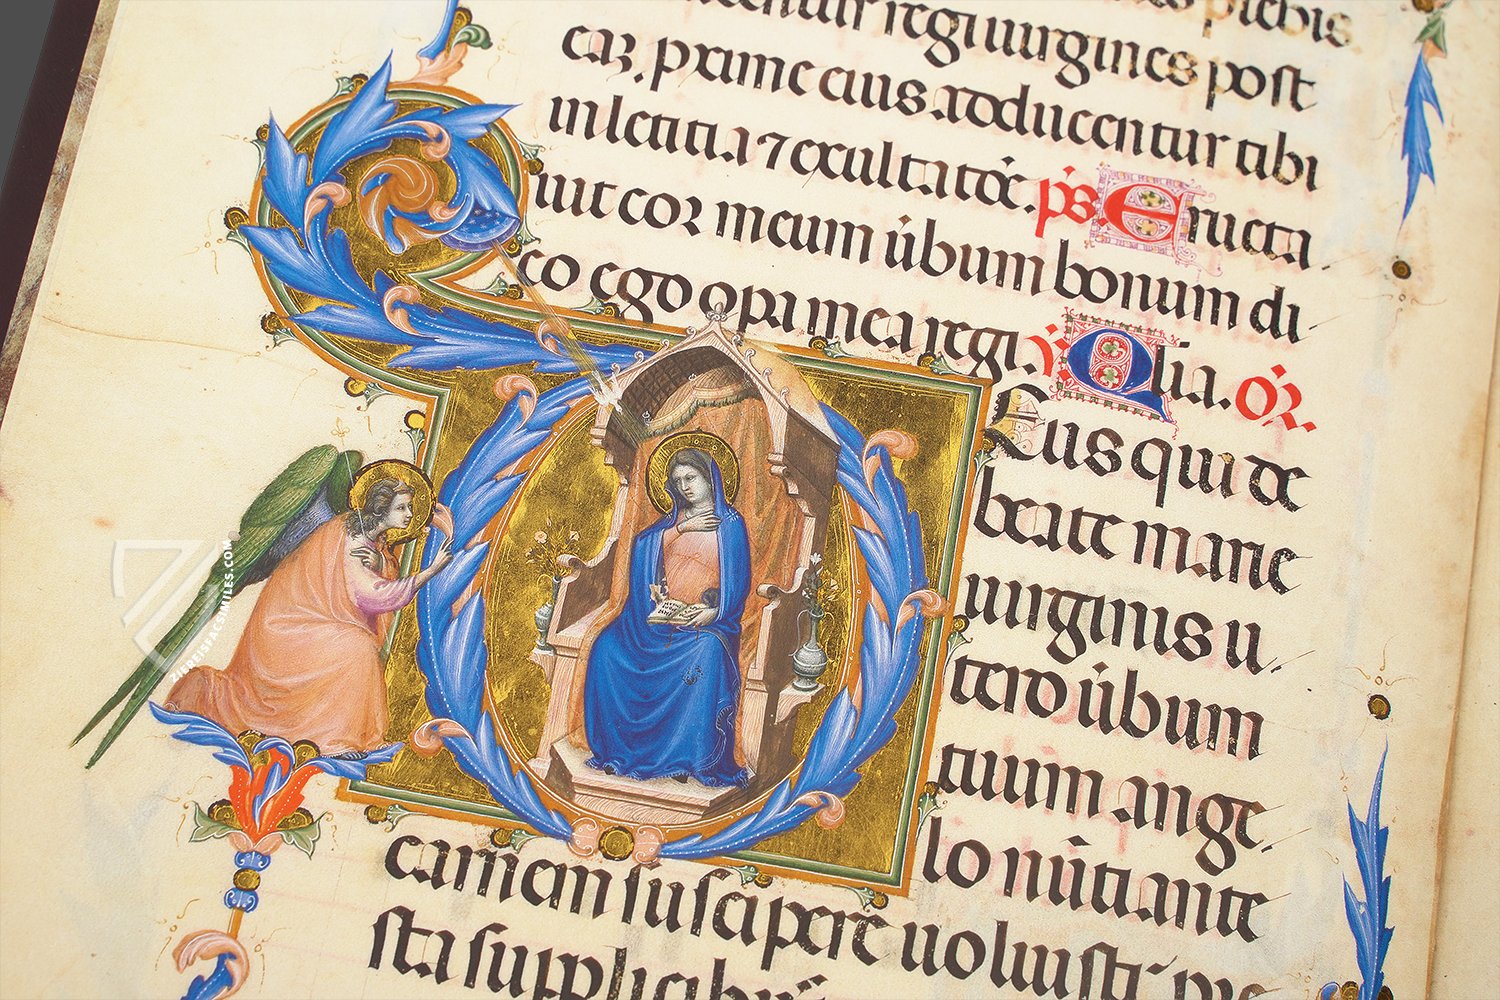 plebis
centur regi uirgines post
eaꝝ. pxime eius adducentur tibi
in letitia ⁊ exultatōe. p̄s. Eructa
uit cor meum ūbum bonum di
co ego opa mea regi. Alia. or̄.
Eus qui de
beate marie
uirginis u
tero ūbum
tuum ange
lo nūtiante
carnem suscipere uoluisti
sta supplicibꝰ
ZIEREISFACSIMILES.COM